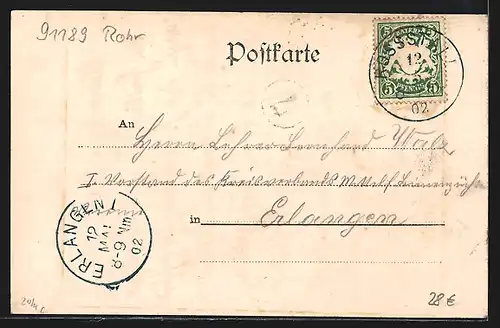 91189 Rohr
Postkarte
5 5
PFENNIG
12
02
An
Herrn Lehrer Bernhard Walz
I. Vorstand des Kreisverbands
in Erlangen
ERLANGEN 1
12
MAI
8-9 Nm
02
28 €